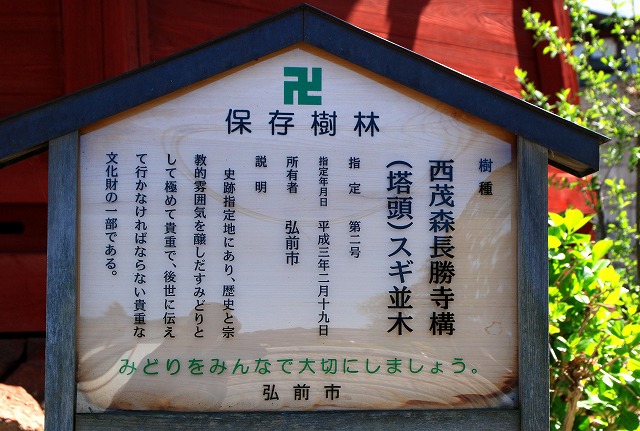 卍
保存樹林
樹種
西茂森長勝寺構
(塔頭)スギ並木
指定 第二号
指定年月日 平成三年二月十九日
所有者 弘前市
説明
史跡指定地にあり、歴史と宗
教的雰囲気を醸しだすみどりと
して極めて貴重で、後世に伝え
て行かなければならない貴重な
文化財の一部である。
みどりをみんなで大切にしましょう。
弘前市